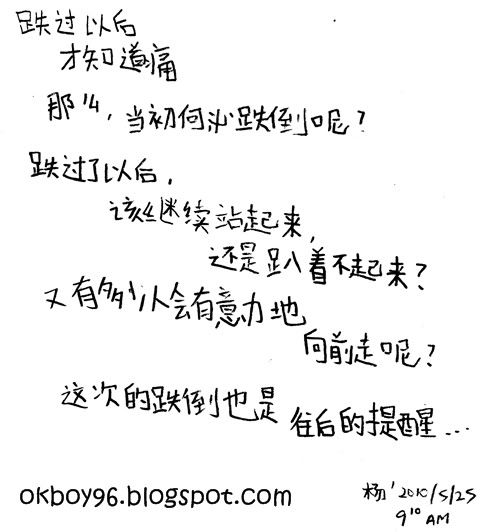 跌过以后
才知道痛
那么,当初何必跌倒呢?
跌过了以后,
该继续站起来,
还是趴着不起来?
又有多少人会有意力地
向前走呢?
这次的跌倒也是往后的提醒...
okboy96.blogspot.com
杨 '2010/5/25
9¹⁰ AM